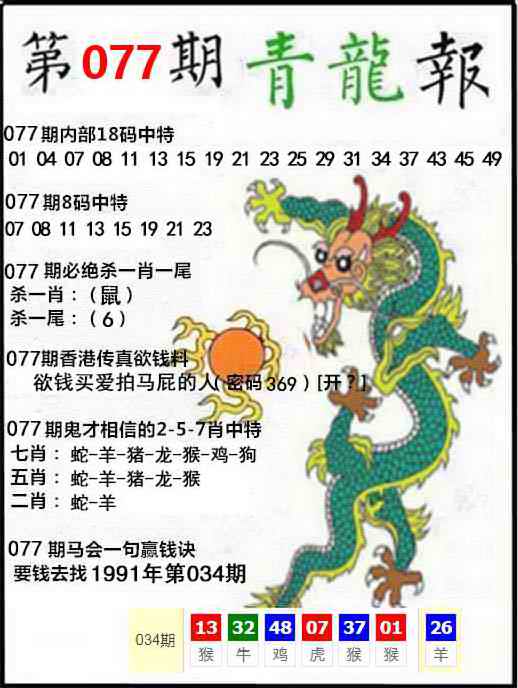 第077期青龍報
077期内部18码中特
01 04 07 08 11 13 15 19 21 23 25 29 31 34 37 43 45 49
077期8码中特
07 08 11 13 15 19 21 23
077 期必绝杀一肖一尾
杀一肖：（鼠）
杀一尾：（6）
077期香港传真欲钱料
欲钱买爱拍马屁的人(密码369）[开？]
077期鬼才相信的2-5-7肖中特
七肖：蛇-羊-猪-龙-猴-鸡-狗
五肖：蛇-羊-猪-龙-猴
二肖：蛇-羊
077期马会一句赢钱诀
要钱去找1991年第034期
034期 13 32 48 07 37 01 26
猴 牛 鸡 虎 猴 猴 羊